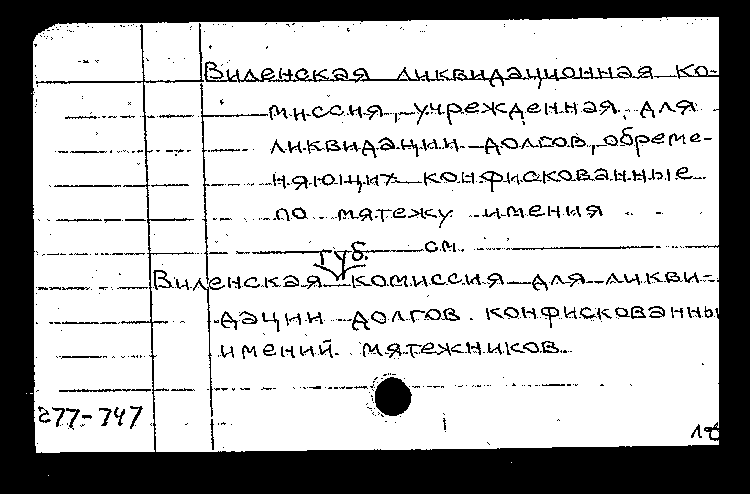 Виленская ликвидационная ко-
миссия, учрежденная для
ликвидации долгов, обреме-
няющих конфискованные
по мятежу имения
см.
губ.
Виленская комиссия для ликви-
дации долгов конфискованны
имений мятежников.
277-747